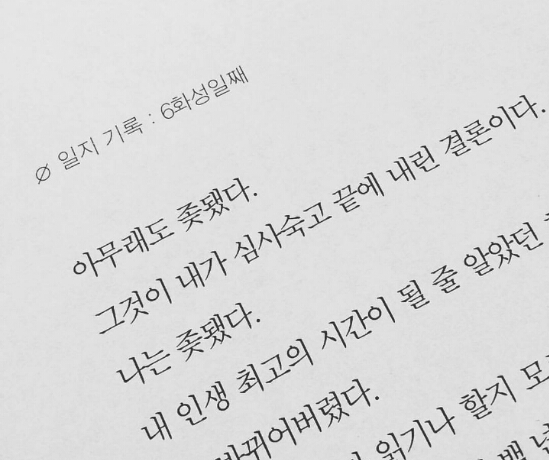 Ø 일지 기록 : 6화성일째
아무래도 좆됐다.
그것이 내가 심사숙고 끝에 내린 결론이다.
나는 좆됐다.
내 인생 최고의 시간이 될 줄 알았던
바뀌어버렸다.
읽기나 할지